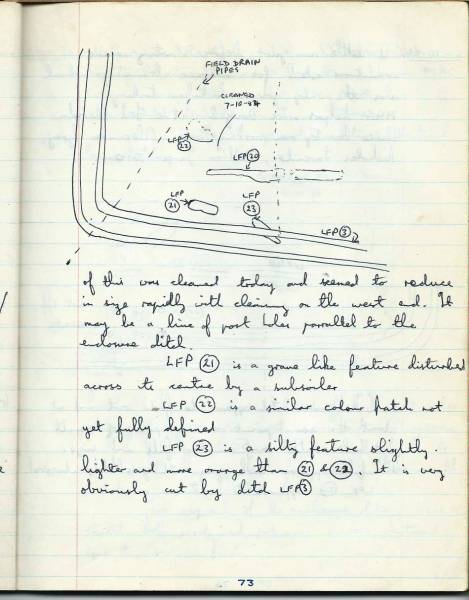 FIELD DRAIN
PIPES
CLEANED
7-10-84
LFP
22
LFP 20
LFP
21
LFP
23
LFP 3
of this was cleaned today and seemed to reduce
in size rapidly with cleaning on the west end. It
may be a line of post holes parrallel to the
enclosure ditch.
LFP 21 is a grave like feature disturbed
across its centre by a subsoiler
LFP 22 is a similar colour patch not
yet fully defined
LFP 23 is a silty feature slightly.
lighter and more orange than 21 & 22. It is very
obviously cut by ditch LFP 3
73